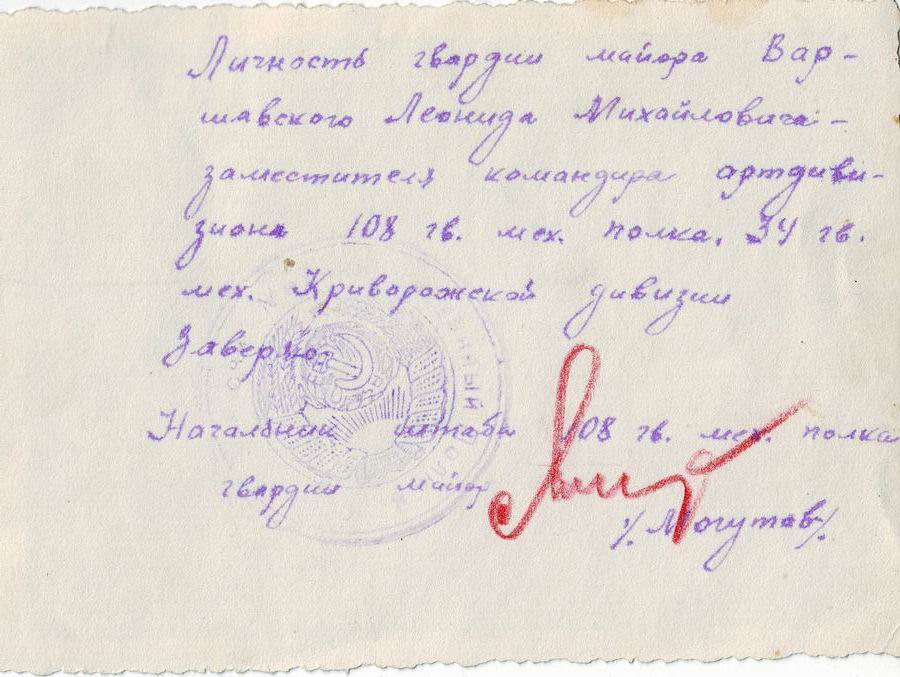 Личность гвардии майора Вар-
шавского Леонида Михайловича -
заместителя командира артдиви-
зиона 108 гв. мех. полка, 34 гв.
мех. Криворожской дивизии
Заверяю:
Начальник штаба 108 гв. мех. полка
гвардии майор
/Могутов/.